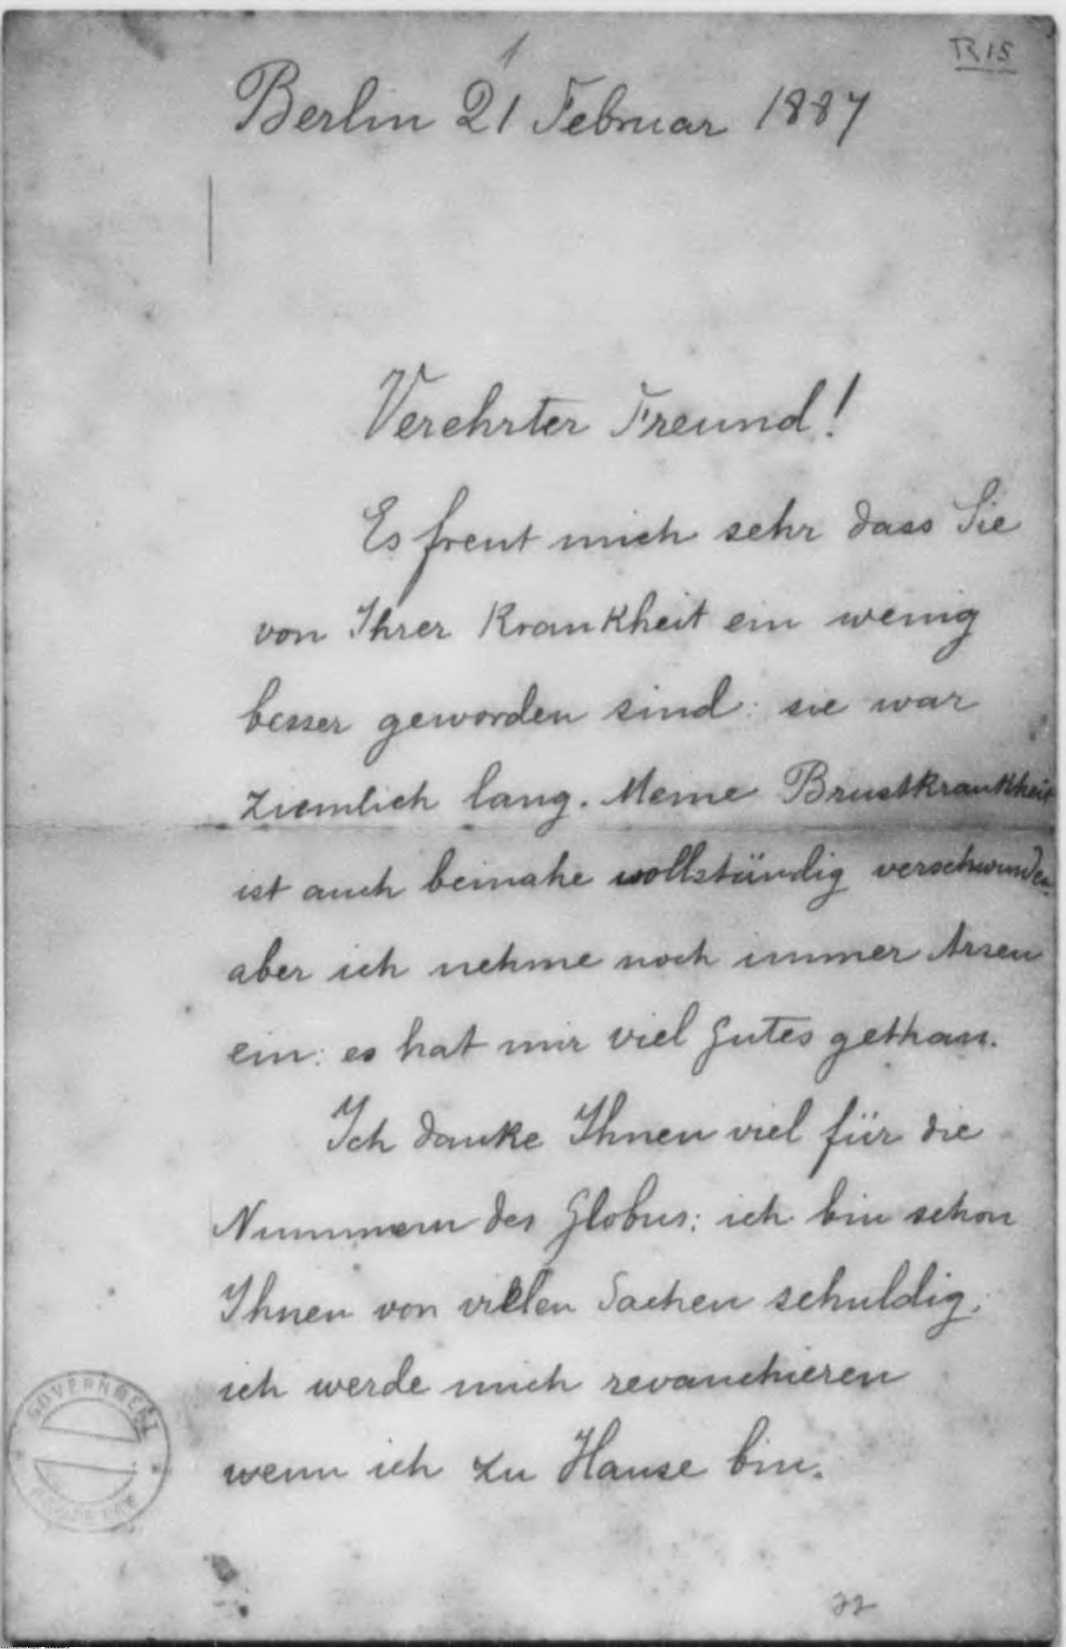 R15
1
Berlin 21 Februar 1887
Verehrter Freund!
Es freut mich sehr dass Sie
von Ihrer Krankheit ein wenig
besser geworden sind: sie war
ziemlich lang. Meine Brustkrankheit
ist auch beinahe wollständig verschwunden
aber ich nehme noch immer Arsen
ein: es hat mir viel Gutes gethan.
Ich danke Ihnen viel für die
Nummern des Globus; ich bin schon
Ihnen von vielen Sachen schuldig;
ich werde mich revanchieren
wenn ich zu Hause bin.
GOVERNMENT